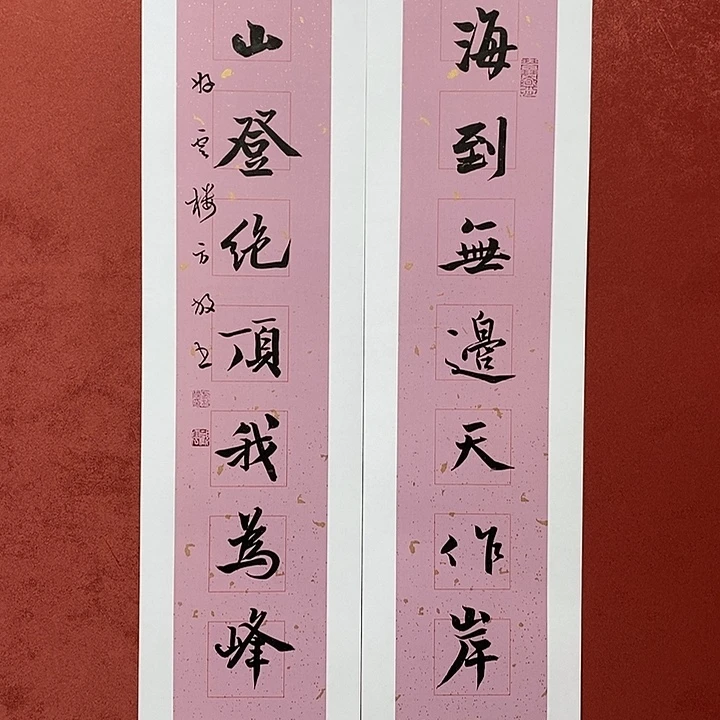 海到無邊天作岸
山登绝頂我為峰